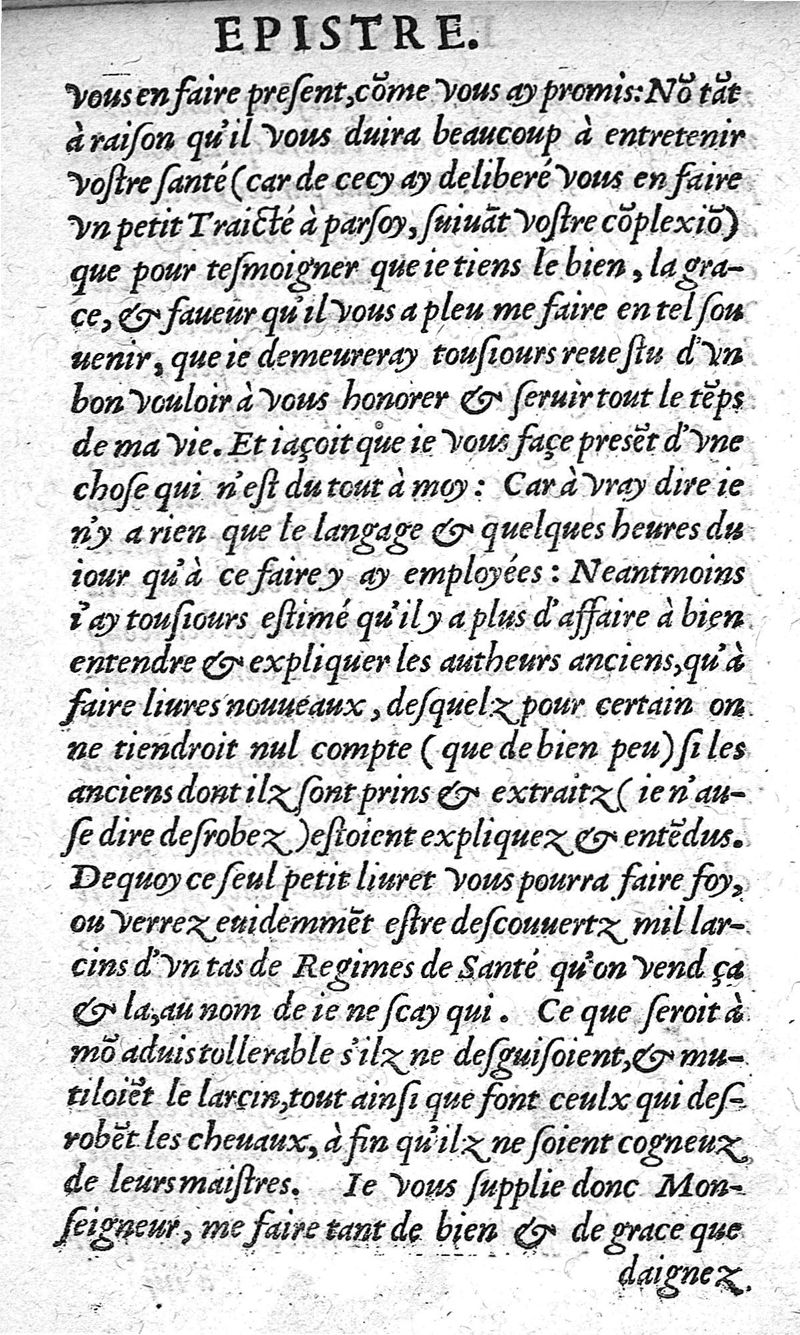 EPISTRE.
vous en faire preſent, cõme vous ay promis: Nõ tãt
à raiſon qu'il vous duira beaucoup à entretenir
voſtre ſanté (car de cecy ay deliberé vous en faire
vn petit Traicté à parſoy, ſuiuãt voſtre cõplexiõ)
que pour teſmoigner que ie tiens le bien, la gra-
ce, & faueur qu'il vous a pleu me faire en tel ſou
uenir, que ie demeureray touſiours reueſtu d'vn
bon vouloir à vous honorer & ſeruir tout le tẽps
de ma vie. Et iaçoit que ie vous façe preſẽt d'vne
choſe qui n'eſt du tout à moy: Car à vray dire ie
n'y a rien que le langage & quelques heures du
iour qu'à ce faire y ay employées: Neantmoins
i'ay touſiours eſtimé qu'il y a plus d'affaire à bien
entendre & expliquer les autheurs anciens, qu'à
faire liures nouueaux, deſquelz pour certain on
ne tiendroit nul compte (que de bien peu) ſi les
anciens dont ilz ſont prins & extraitz (ie n'au-
ſe dire deſrobez) eſtoient expliquez & entẽdus.
Dequoy ce ſeul petit liuret vous pourra faire foy,
ou verrez euidemmẽt eſtre deſcouuertz mil lar-
cins d'vn tas de Regimes de Santé qu'on vend ça
& la, au nom de ie ne ſcay qui. Ce que ſeroit à
mõ aduis tollerable s'ilz ne deſguiſoient, & mu-
tiloiẽt le larçin, tout ainſi que font ceulx qui deſ-
robẽt les cheuaux, à fin qu'ilz ne ſoient cogneuz
de leurs maiſtres. Ie vous ſupplie donc Mon-
ſeigneur, me faire tant de bien & de grace que
daignez